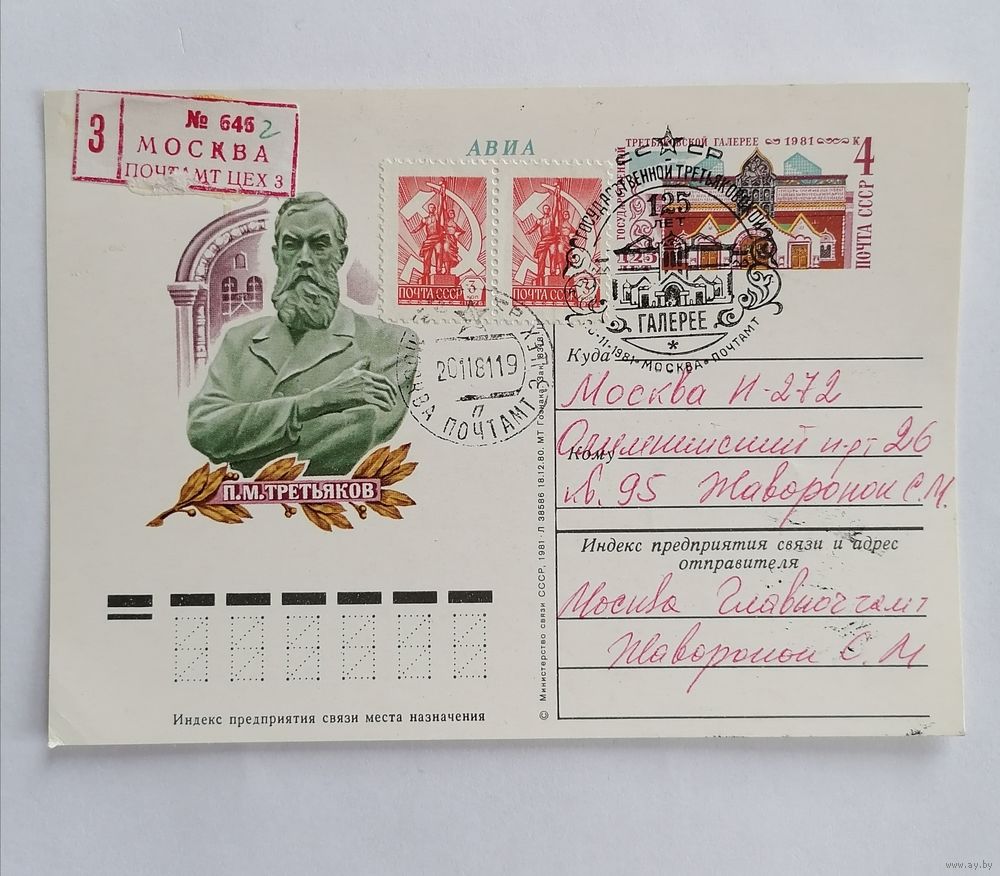 З
№ 646 2
МОСКВА
ПОЧТАМТ ЦЕХ 3
АВИА
ТРЕТЬЯКОВСКОЙ ГАЛЕРЕЕ 1981
К 4
ГОСУДАРСТВЕННОЙ
125
ПОЧТА СССР
ПОЧТА СССР 3
ПОЧТА СССР
СССР
ГОСУДАРСТВЕННОЙ ТРЕТЬЯКОВСКОЙ
125
ЛЕТ
ГАЛЕРЕЕ
11-1981 • МОСКВА • ПОЧТАМТ
МОСКВА ПОЧТАМТ
20118119
П
П.М.ТРЕТЬЯКОВ
Куда
Москва И-272
Кому
26
95 Жаворонок С.М.
Индекс предприятия связи и адрес
отправителя
Москва Главпочтамт
Жаворонок С. М
Индекс предприятия связи места назначения
© Министерство связи СССР, 1981 · Л 38586 18.12.80. МТ Гознака. Зак.
www.ay.by